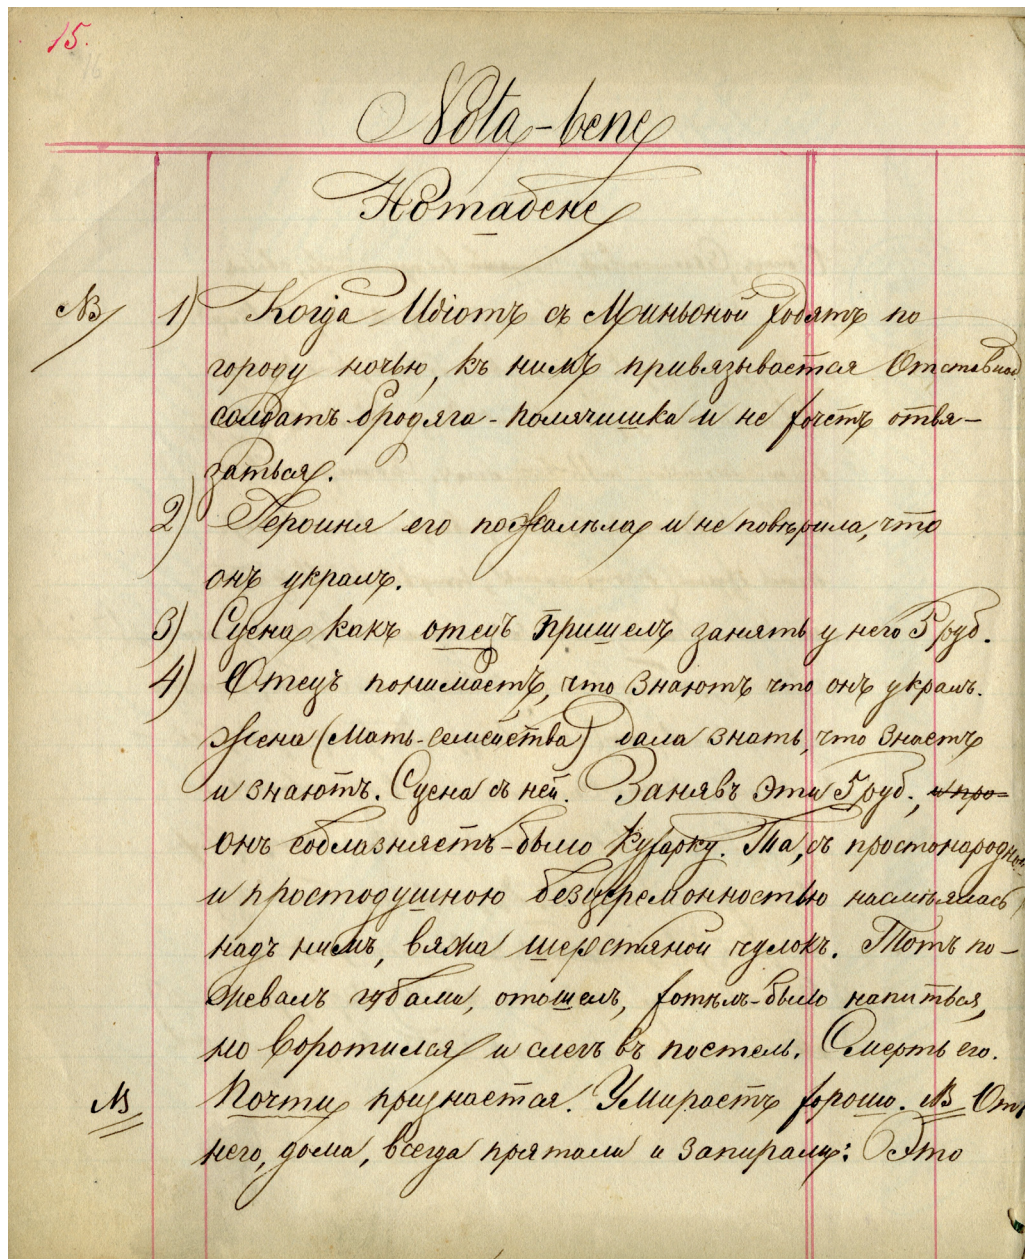 15.
Nota-bene
Нотабене
NB 1) Когда Идіотъ съ Миньоной ходятъ по
городу ночью, къ нимъ привязывается Отставной
солдатъ бродяга-полячишка и не хочетъ отвя-
заться.
2) Героиня его пожалѣла и не повѣрила, что
онъ укралъ.
3) Сцена какъ отецъ пришелъ занять у него 5 руб.
4) Отецъ понимаетъ, что знаютъ что онъ укралъ.
Жена (Мать-семейства) дала знать, что знаетъ
и знаютъ. Сцена съ ней. Занявъ эти 5 руб., и про-
онъ соблазняетъ-было кухарку. Та, съ простонародною
и простодушною безцеремонностью насмѣялась
надъ нимъ, вяжа шерстяной чулокъ. Тотъ по-
жевалъ губами, отошелъ, хотѣлъ-было напиться,
но воротился и слегъ въ постель. Смерть его.
NB Почти признается. Умираетъ хорошо. NB Отъ
него, дома, всегда прятали и запирали: Это